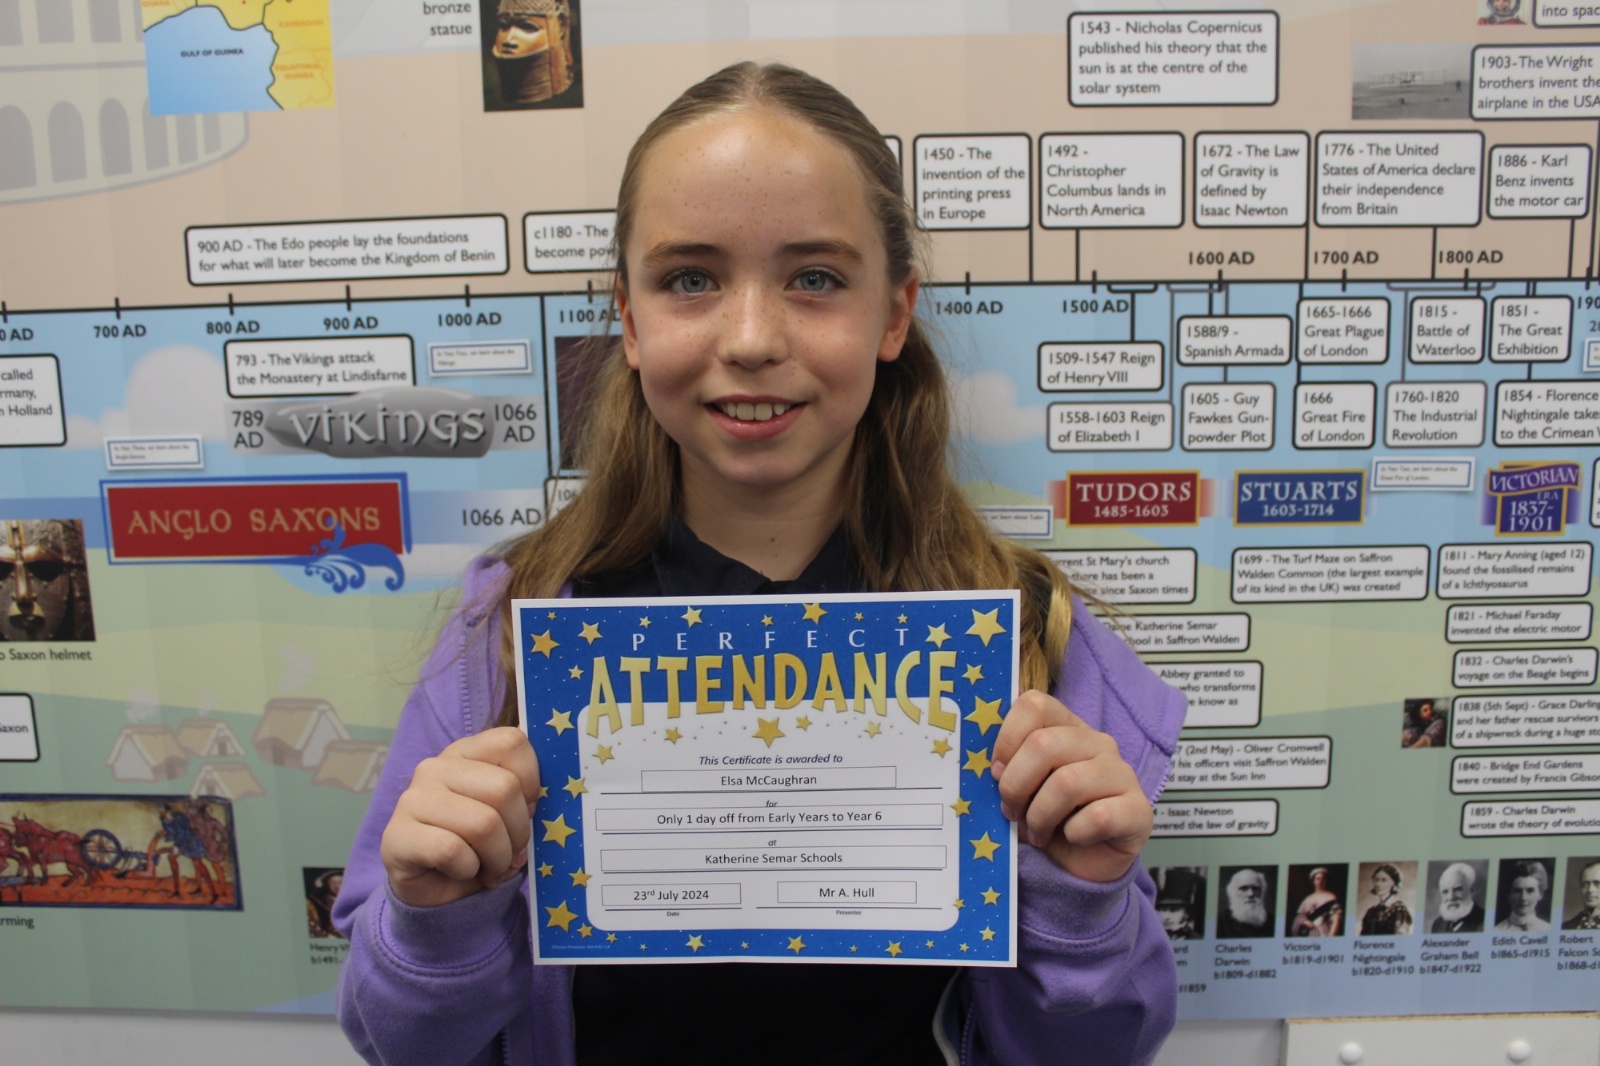 bronze
statue
GULF OF GUINEA
EQUATORIAL
GUINEA
1543 - Nicholas Copernicus
published his theory that the
sun is at the centre of the
solar system
into
1903 - The Wright
brothers invent the
airplane in the USA
1450 - The
invention of the
printing press
in Europe
1492 -
Christopher
Columbus lands in
North America
1672 - The Law
of Gravity is
defined by
Isaac Newton
1776 - The United
States of America declare
their independence
from Britain
1886 - Karl
Benz invents
the motor car
900 AD - The Edo people lay the foundations
for what will later become the Kingdom of Benin
c1180 - The
become
1600 AD
1700 AD
1800 AD
700 AD
800 AD
900 AD
1000 AD
1100
1400 AD
1500 AD
called
793 - The Vikings attack
the Monastery at Lindisfarne
Holland
789
AD
VIKINGS
1066
AD
1509-1547 Reign
of Henry VIII
1558-1603 Reign
of Elizabeth I
1588/9 -
Spanish Armada
1605 - Guy
Fawkes Gun-
powder Plot
1665-1666
Great Plague
of London
1666
Great Fire
of London
1815 -
Battle of
Waterloo
1760-1820
The Industrial
Revolution
1851 -
The Great
Exhibition
1854 - Florence
Nightingale
to the Crimean
ANGLO SAXONS
1066 AD
TUDORS
1485-1603
STUARTS
1603-1714
VICTORIAN
ERA
1837-
1901
Saxon helmet
St Mary's church
there has been a
since Saxon times
1699 - The Turf Maze on Saffron
Walden Common (the largest example
of its kind in the UK) was created
1811 - Mary Anning (aged 12)
found the fossilised remains
of a Ichthyosaurus
Katherine Semar
in Saffron Walden
1821 - Michael Faraday
invented the electric motor
Abbey granted to
who transforms
know as
1832 - Charles Darwin's
voyage on the Beagle begins
1838 (5th Sept) - Grace Darling
and her father rescue survivors
of a shipwreck during a huge
(2nd May) - Oliver Cromwell
his officers visit Saffron Walden
stay at the Sun Inn
1840 - Bridge End Gardens
were created by Francis
- Isaac Newton
the law of gravity
1859 - Charles Darwin
wrote the theory of
PERFECT
ATTENDANCE
This Certificate is awarded to
Elsa McCaughran
for
Only 1 day off from Early Years to Year 6
at
Katherine Semar Schools
23rd July 2024
Mr A. Hull
Date
Presenter
Charles
Darwin
b1809-d1882
Victoria
b1819-d1901
Florence
Nightingale
b1820-d1910
Alexander
Graham Bell
b1847-d1922
Edith Cavell
b1865-d1915
Robert
Falcon